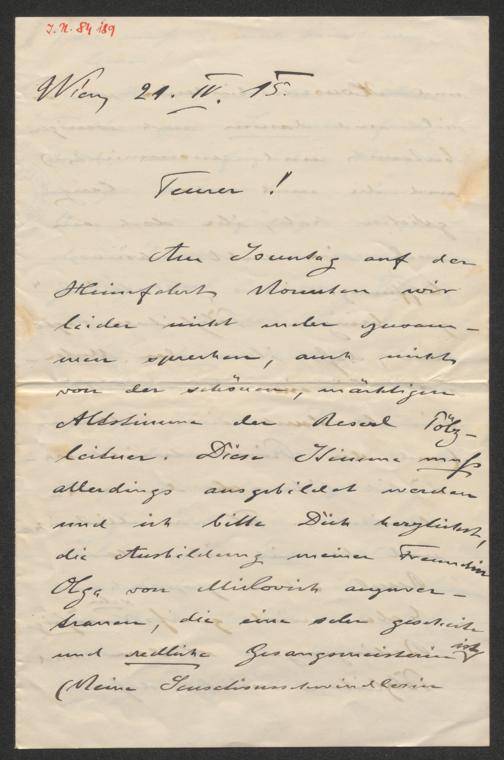 I. N. 84 189
Wien, 21. IV. 15.
Teurer !
Am Sonntag auf der
Heimfahrt konnten wir
leider nicht mehr zusam-
men sprechen, auch nicht
von der schönen, mächtigen
Altstimme der Reserl Tölz-
leitner. Diese Stimme muß
allerdings ausgebildet werden
und ich bitte Dich herzlichst,
die Ausbildung meiner Freundin
Olga von Mirlovich anzuver-
trauen, die eine sehr gescheite
und redliche Gesangsmeisterin ist
(keine